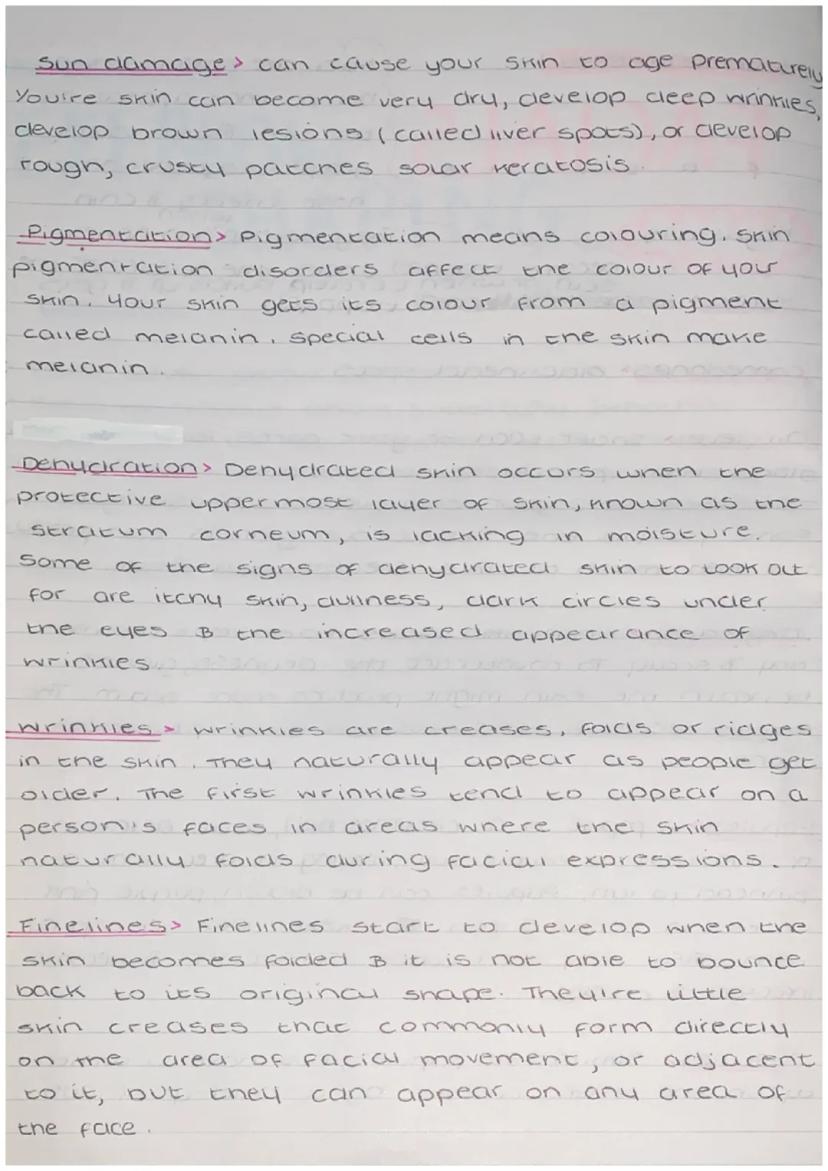 Sun damage> can cause your skin to age prematurely
You're skin can become very dry, develop deep wrinkles,
develop brown lesions (called liver spots), or develop
rough, crusty patches solar keratosis.
Pigmentation> Pigmentation means colouring. Skin
pigmentation disorders affect the colour of your
skin. Your skin gets its colour from a pigment
called melanin. Special cells in the skin make
melanin.
Dehydration> Dehydrated skin occurs when the
protective uppermost layer of skin, known as the
stratum corneum, is lacking in moisture.
Some of the signs of dehydrated skin to look out
for are itchy skin, dullness, dark circles under
the eyes & the increased appearance of
wrinkles.
Wrinkles> Wrinkles are creases, folds or ridges
in the skin. They naturally appear as people get
older. The first wrinkles tend to appear on a
person's faces in areas where the skin
naturally folds during facial expressions.
Finelines> Finelines start to develop when the
skin becomes folded & it is not able to bounce
back to its original shape. They're little
skin creases that commonly form directly
on the area of facial movement, or adjacent
to it, but they can appear on any area of
the face.